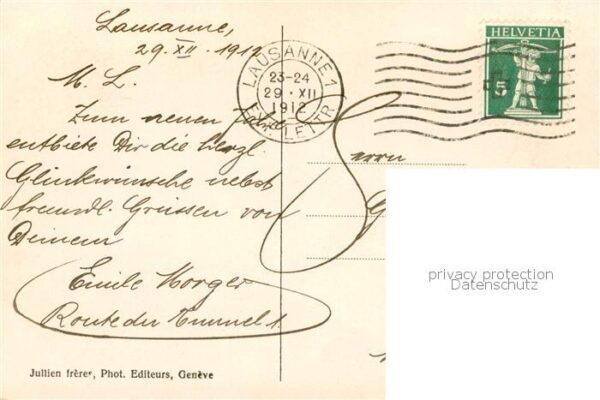 Lausanne,
29. XII. 1912
M. L.
Zum neuen Jahre
entbiete Dir die herzl.
Glückwünsche nebst
freundl. Grüssen von
Deinem
Emile Morger
Route du Tunnel 1.
Jullien frères, Phot. Editeurs, Genève
LAUSANNE 1
23-24
29 · XII
1912
EXP. LETTR.
HELVETIA
5
Herrn
privacy protection
Datenschutz